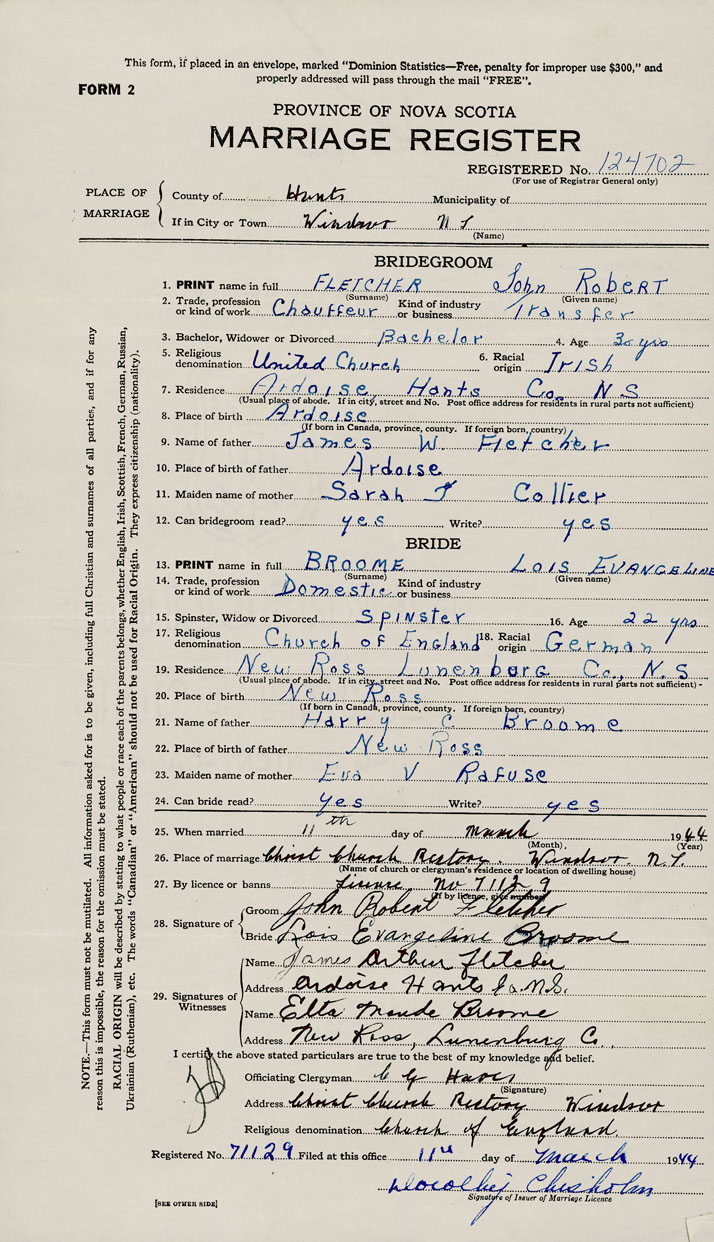 This form, if placed in an envelope, marked "Dominion Statistics—Free, penalty for improper use $300," and
properly addressed will pass through the mail "FREE".
FORM 2
PROVINCE OF NOVA SCOTIA
MARRIAGE REGISTER
REGISTERED No. 124702
(For use of Registrar General only)
PLACE OF MARRIAGE
County of Hants Municipality of
If in City or Town Windsor N S
(Name)
BRIDEGROOM
1. PRINT name in full FLETCHER John RobERT
(Surname) (Given name)
2. Trade, profession or kind of work Chauffeur Kind of industry or business Transfer
3. Bachelor, Widower or Divorced Bachelor 4. Age 30 yrs
5. Religious denomination United Church 6. Racial origin Irish
7. Residence Ardoise Hants Co. N S
(Usual place of abode. If in city, street and No. Post office address for residents in rural parts not sufficient)
8. Place of birth Ardoise
(If born in Canada, province, county. If foreign born, country)
9. Name of father James W. Fletcher
10. Place of birth of father Ardoise
11. Maiden name of mother Sarah J Collier
12. Can bridegroom read? yes Write? yes
BRIDE
13. PRINT name in full BROOME LOIS EVANGELINE
(Surname) (Given name)
14. Trade, profession or kind of work Domestic Kind of industry or business
15. Spinster, Widow or Divorced SPINSTER 16. Age 22 yrs
17. Religious denomination Church of England 18. Racial origin German
19. Residence New Ross Lunenburg Co., N.S
(Usual place of abode. If in city, street and No. Post office address for residents in rural parts not sufficient)
20. Place of birth New Ross
(If born in Canada, province, county. If foreign born, country)
21. Name of father Harry C Broome
22. Place of birth of father New Ross
23. Maiden name of mother Eva V Rafuse
24. Can bride read? yes Write? yes
25. When married 11th day of March 1944
(Month) (Year)
26. Place of marriage Christ Church Rectory. Windsor. N.S.
(Name of church or clergyman's residence or location of dwelling house)
27. By licence or banns License No 71129
(If by licence, give number)
28. Signature of
Groom John Robert Fletcher
Bride Lois Evangeline Broome
29. Signatures of Witnesses
Name James Arthur Fletcher
Address Ardoise Hants Co. N.S.
Name Etta Maude Broome
Address New Ross, Lunenburg Co.,
I certify the above stated particulars are true to the best of my knowledge and belief.
Officiating Clergyman
(Signature)
Address Christ Church Rectory Windsor
Religious denomination Church of England
Registered No. 71129 Filed at this office 11th day of March 1944
Chisholm
Signature of Issuer of Marriage Licence
[SEE OTHER SIDE]
NOTE.—This form must not be mutilated. All information asked for is to be given, including full Christian and surnames of all parties, and if for any
reason this is impossible, the reason for the omission must be stated.
RACIAL ORIGIN will be described by stating to what people or race each of the parents belongs, whether English, Irish, Scottish, French, German, Russian,
Ukrainian (Ruthenian), etc. The words "Canadian" or "American" should not be used for Racial Origin. They express citizenship (nationality).